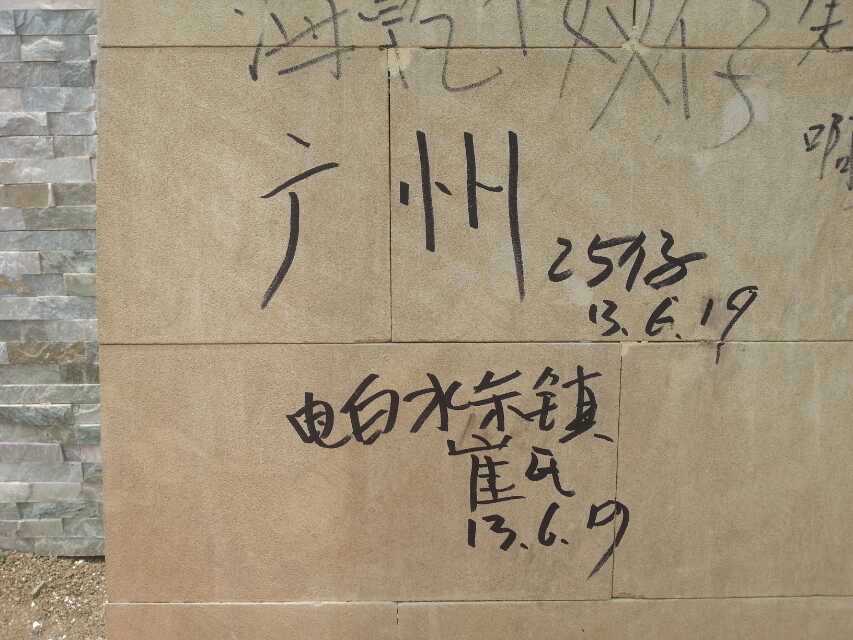 广州
25仔
13.6.19
电白水东镇
崔氏
13.6.19
啊